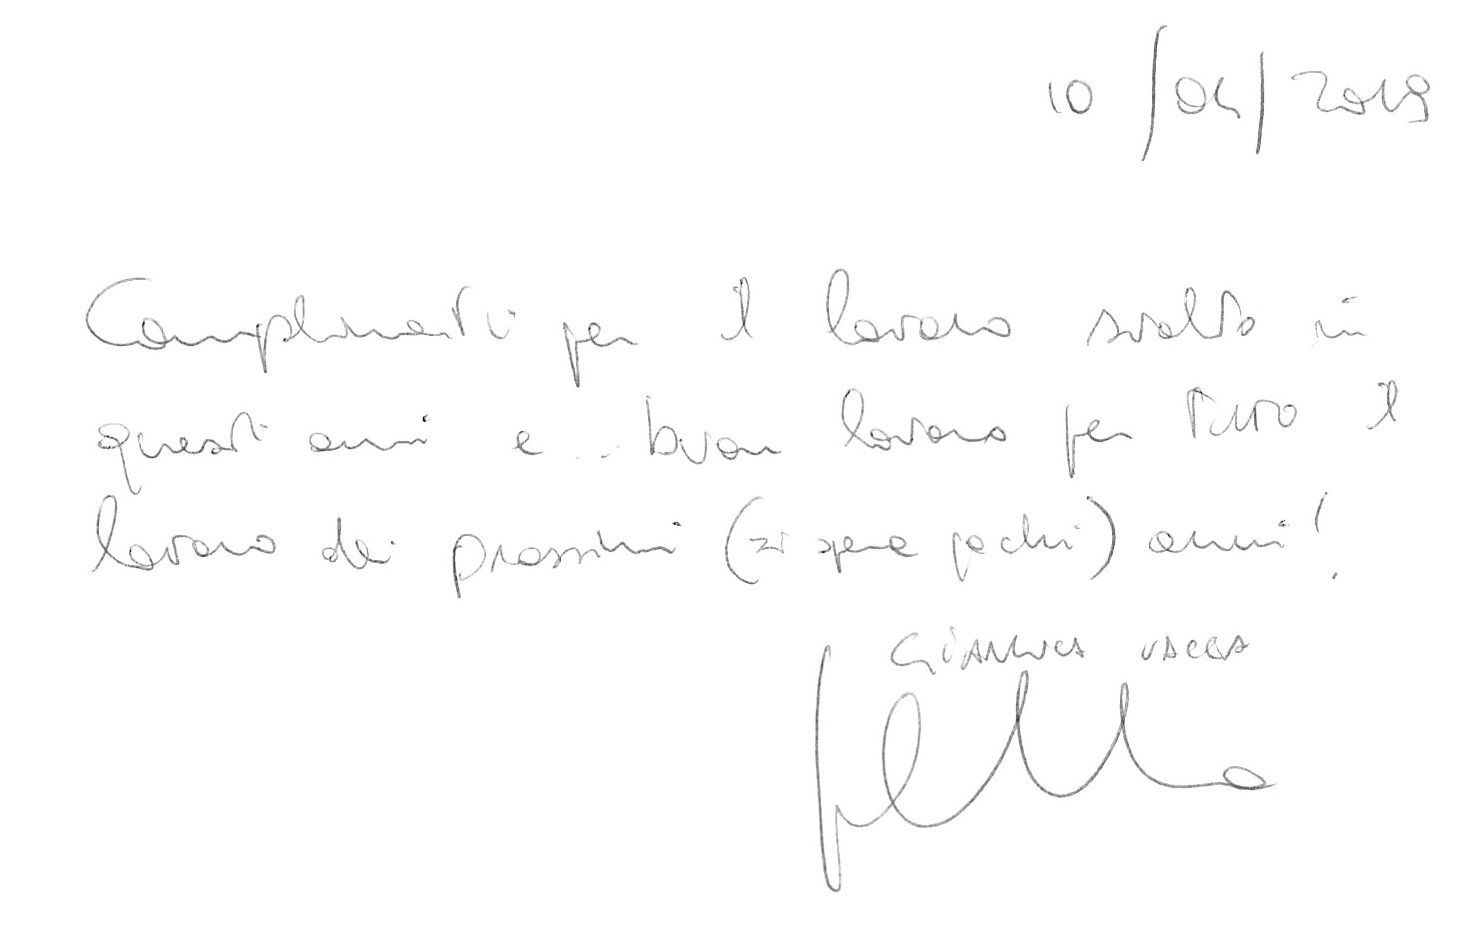 10/04/2019
Complimenti per il lavoro svolto in
questi anni e... buon lavoro per tutto il
lavoro dei prossimi (si spera pochi) anni!
GIANLUCA VACCA